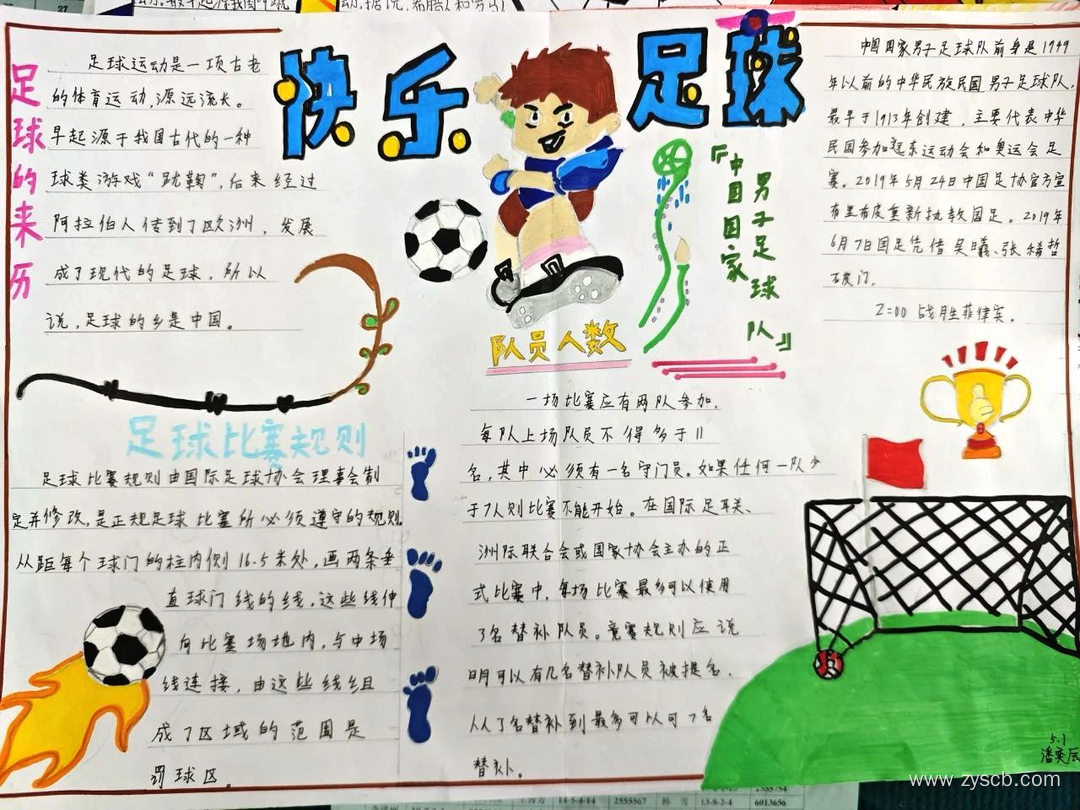 快乐足球
足球的来历
足球运动是一项古老
的体育运动,源远流长。
早起源于我国古代的一种
球类游戏“蹴鞠”,后来经过
阿拉伯人传到了欧洲,发展
成了现代的足球,所以
说,足球的乡是中国。
『中国国家
男子足球队』
中国国家男子足球队前身是1949
年以前的中华民族民国男子足球队,
最早于1913年创建,主要代表中华
民国参加远东运动会和奥运会足
赛。2019年5月24日中国足协官方宣
布里布皮重新执教国足。2019年
6月7日国足凭借吴曦、张稀哲
破门,
2:00战胜菲律宾。
足球比赛规则
足球比赛规则由国际足球协会理事会制
定并修改,是正规足球比赛所必须遵守的规则,
从距每个球门的柱内侧16.5米处,画两条垂
直球门线的线,这些线伸
向比赛场地内,与中场
线连接,由这些线组
成了区域的范围是
罚球区。
队员人数
一场比赛应有两队参加,
每队上场队员不得多于11
名,其中必须有一名守门员。如果任何一队少
于7人则比赛不能开始。在国际足联、
洲际联合会或国家协会主办的正
式比赛中,每场比赛最多可以使用
3名替补队员。竞赛规则应说
明可以有几名替补队员被提名,
从从3名替补到最多可以可7名
替补。
5.1
www.zyscb.com